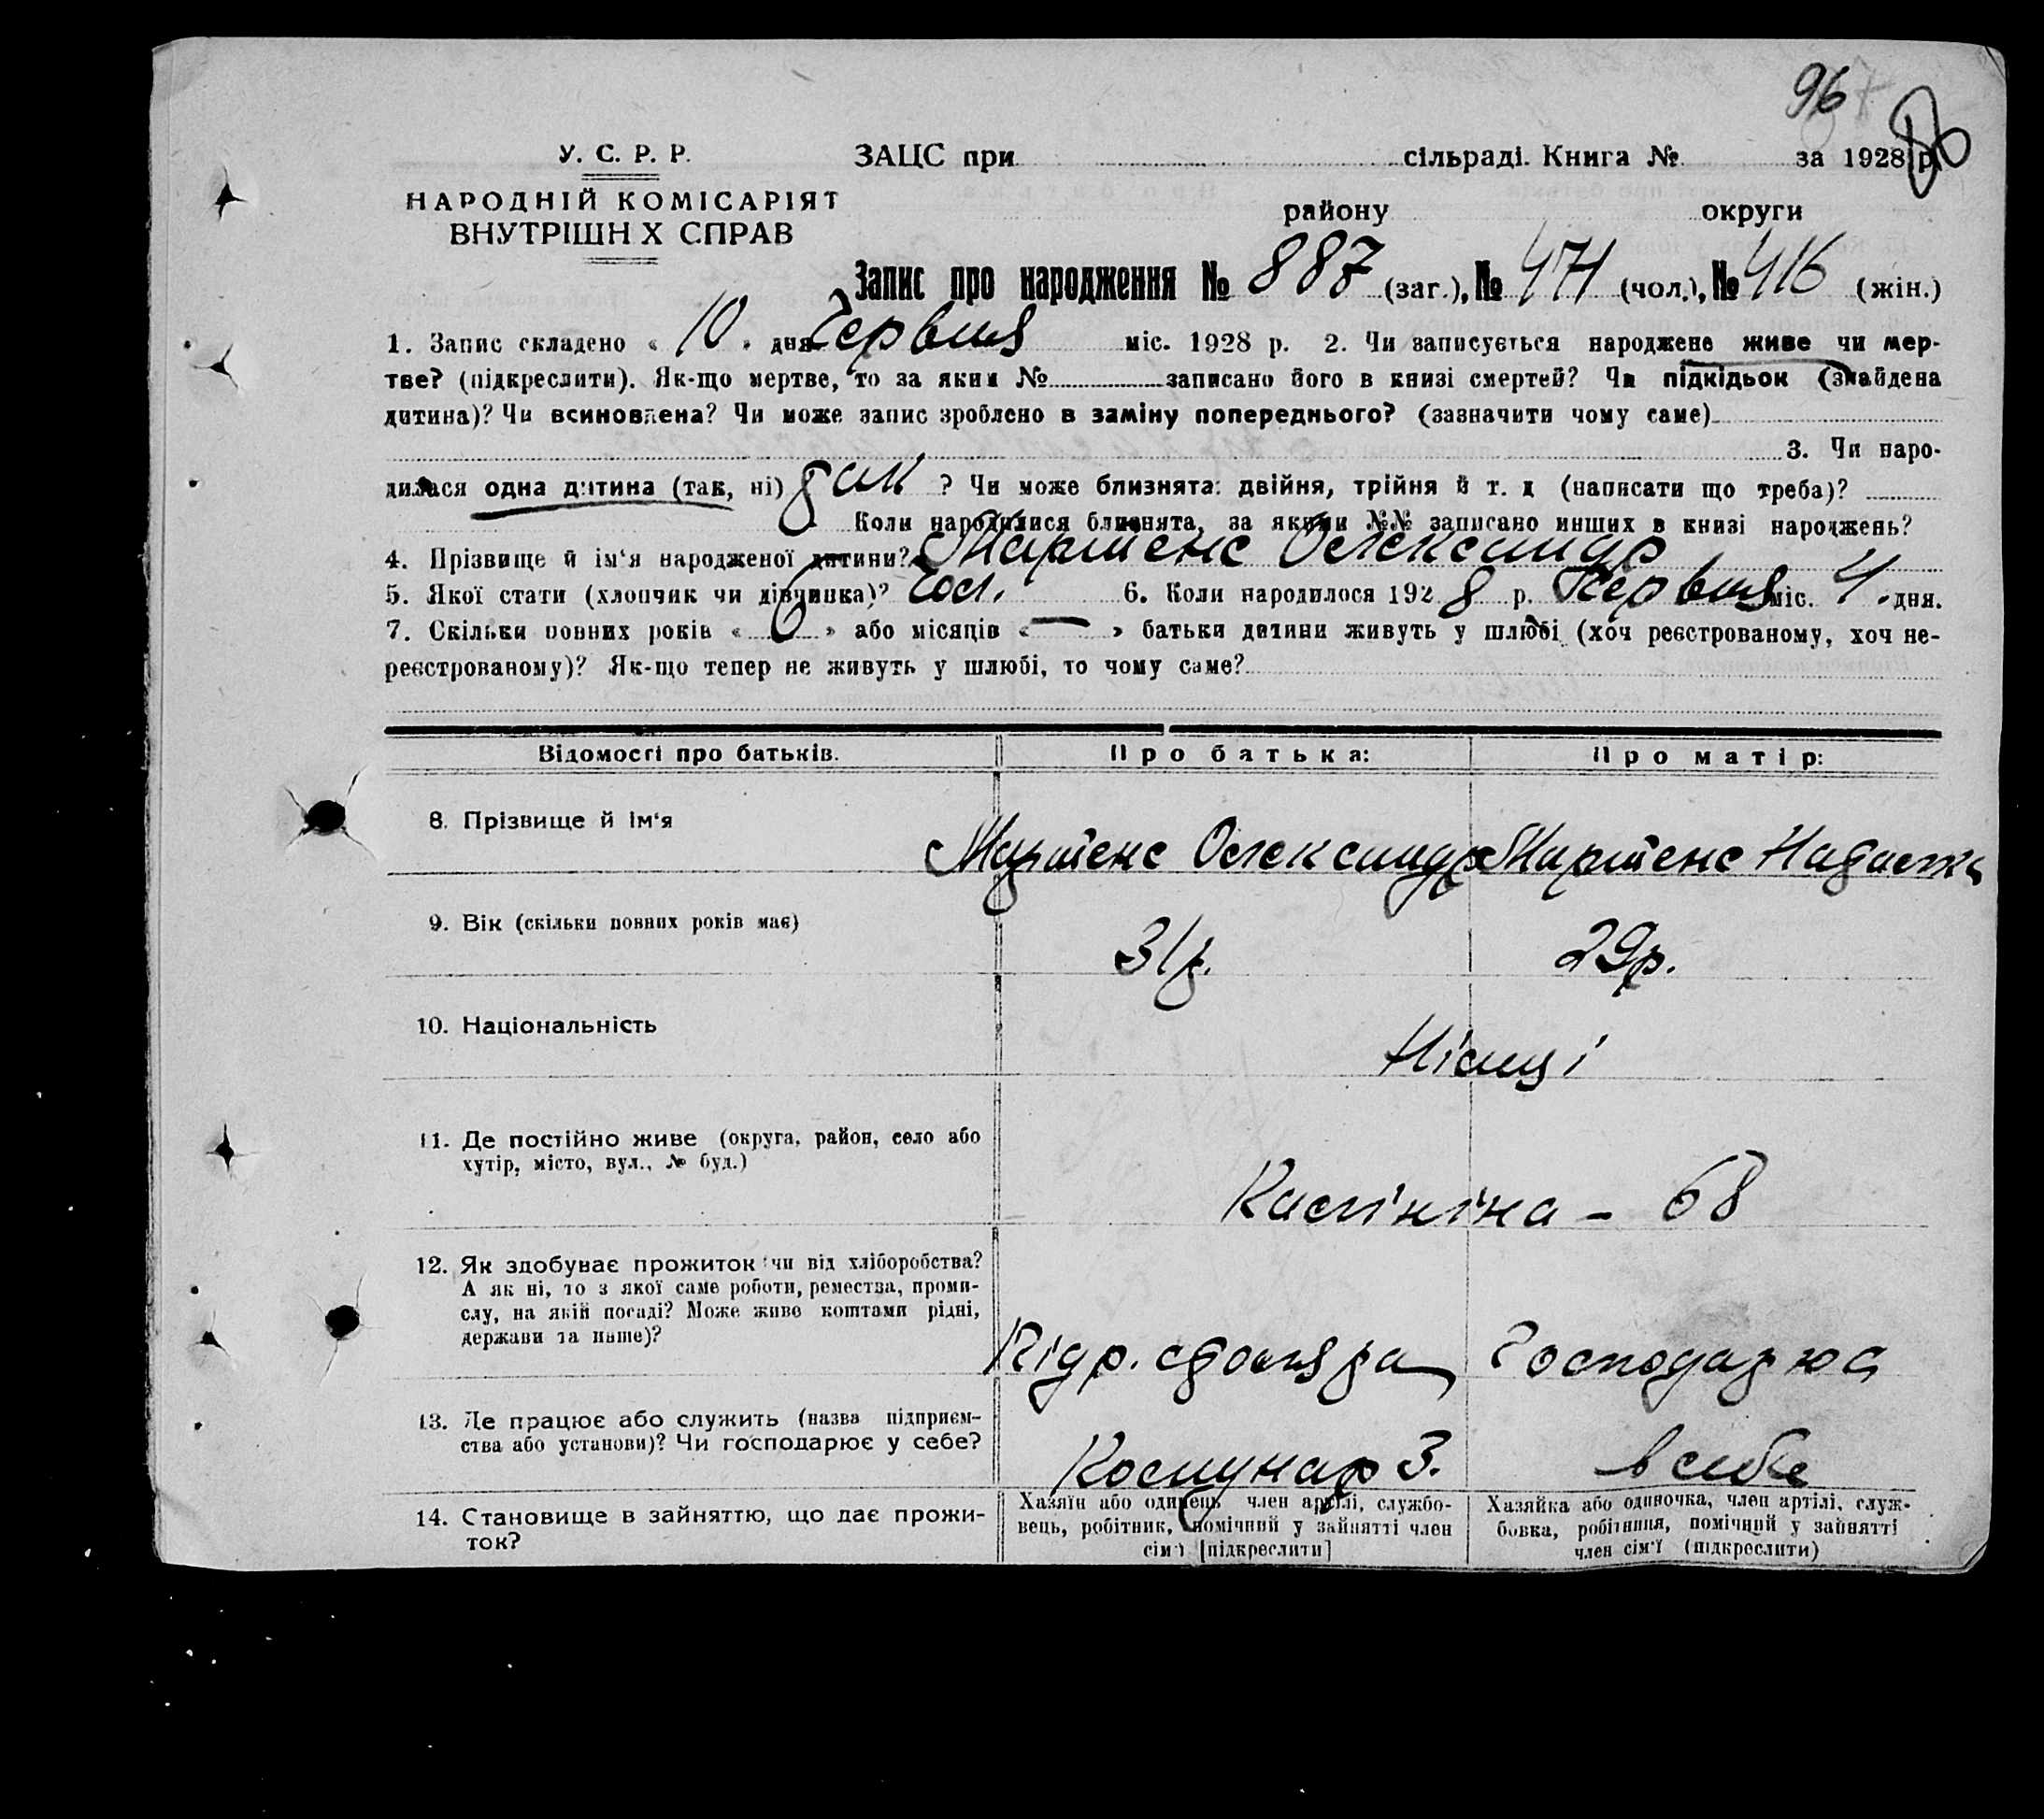 96
У. С. Р. Р. ЗАЦС при сільраді. Книга № за 1928 р.
НАРОДНІЙ КОМІСАРІЯТ району округи
ВНУТРІШН Х СПРАВ
Запис про народження № 887 (заг.), № 471 (чол.), № 416 (жін.)
1. Запис складено « 10 » дня Червня міс. 1928 р. 2. Чи записується народжене живе чи мер-
тве? (підкреслити). Як-що мертве, то за яким № записано його в книзі смертей? Чи підкідьок (знайдена
дитина)? Чи всиновлена? Чи може запис зроблено в заміну попереднього? (зазначити чому саме)
3. Чи наро-
дилася одна дитина (так, ні) так ? Чи може близнята: двійня, трійня й т. д (написати що треба)?
Коли народилися близнята, за якими №№ записано инших в книзі народжень?
4. Прізвище й ім‘я народженої дитини? Мартенс Олександр
5. Якої стати (хлопчик чи дівчинка)? чол. 6. Коли народилося 192 8 р. Червня міс. 4. дня.
7. Скільки повних років « 6 » або місяців « — » батьки дитини живуть у шлюбі (хоч реєстрованому, хоч не-
реєстрованому)? Як-що тепер не живуть у шлюбі, то чому саме?
Відомості про батьків. Про батька: Про матір:
8. Прізвище й ім‘я Мартенс Олександр Мартенс
9. Вік (скільки повних років має) 31 р. 29 р.
10. Національність Німці
11. Де постійно живе (округа, район, село або
хутір, місто, вул., № буд.)
Калініна – 68
12. Як здобуває прожиток чи від хліборобства?
А як ні, то з якої саме роботи, ремества, проми-
слу, на якій посаді? Може живе коштами рідні,
держави та инше)?
столяра Господарює
13. Де працює або служить (назва підприєм-
ства або установи)? Чи господарює у себе?
Комунар З. в себе
14. Становище в зайняттю, що дає прожи-
ток?
Хазяїн або одинець член артілі, службо-
вець, робітник, помічний у зайнятті член
сім‘ї [підкреслити]
Хазяйка або одиночка, член артілі, служ-
бовка, робітниця, помічний у зайнятті
член сім‘ї (підкреслити)